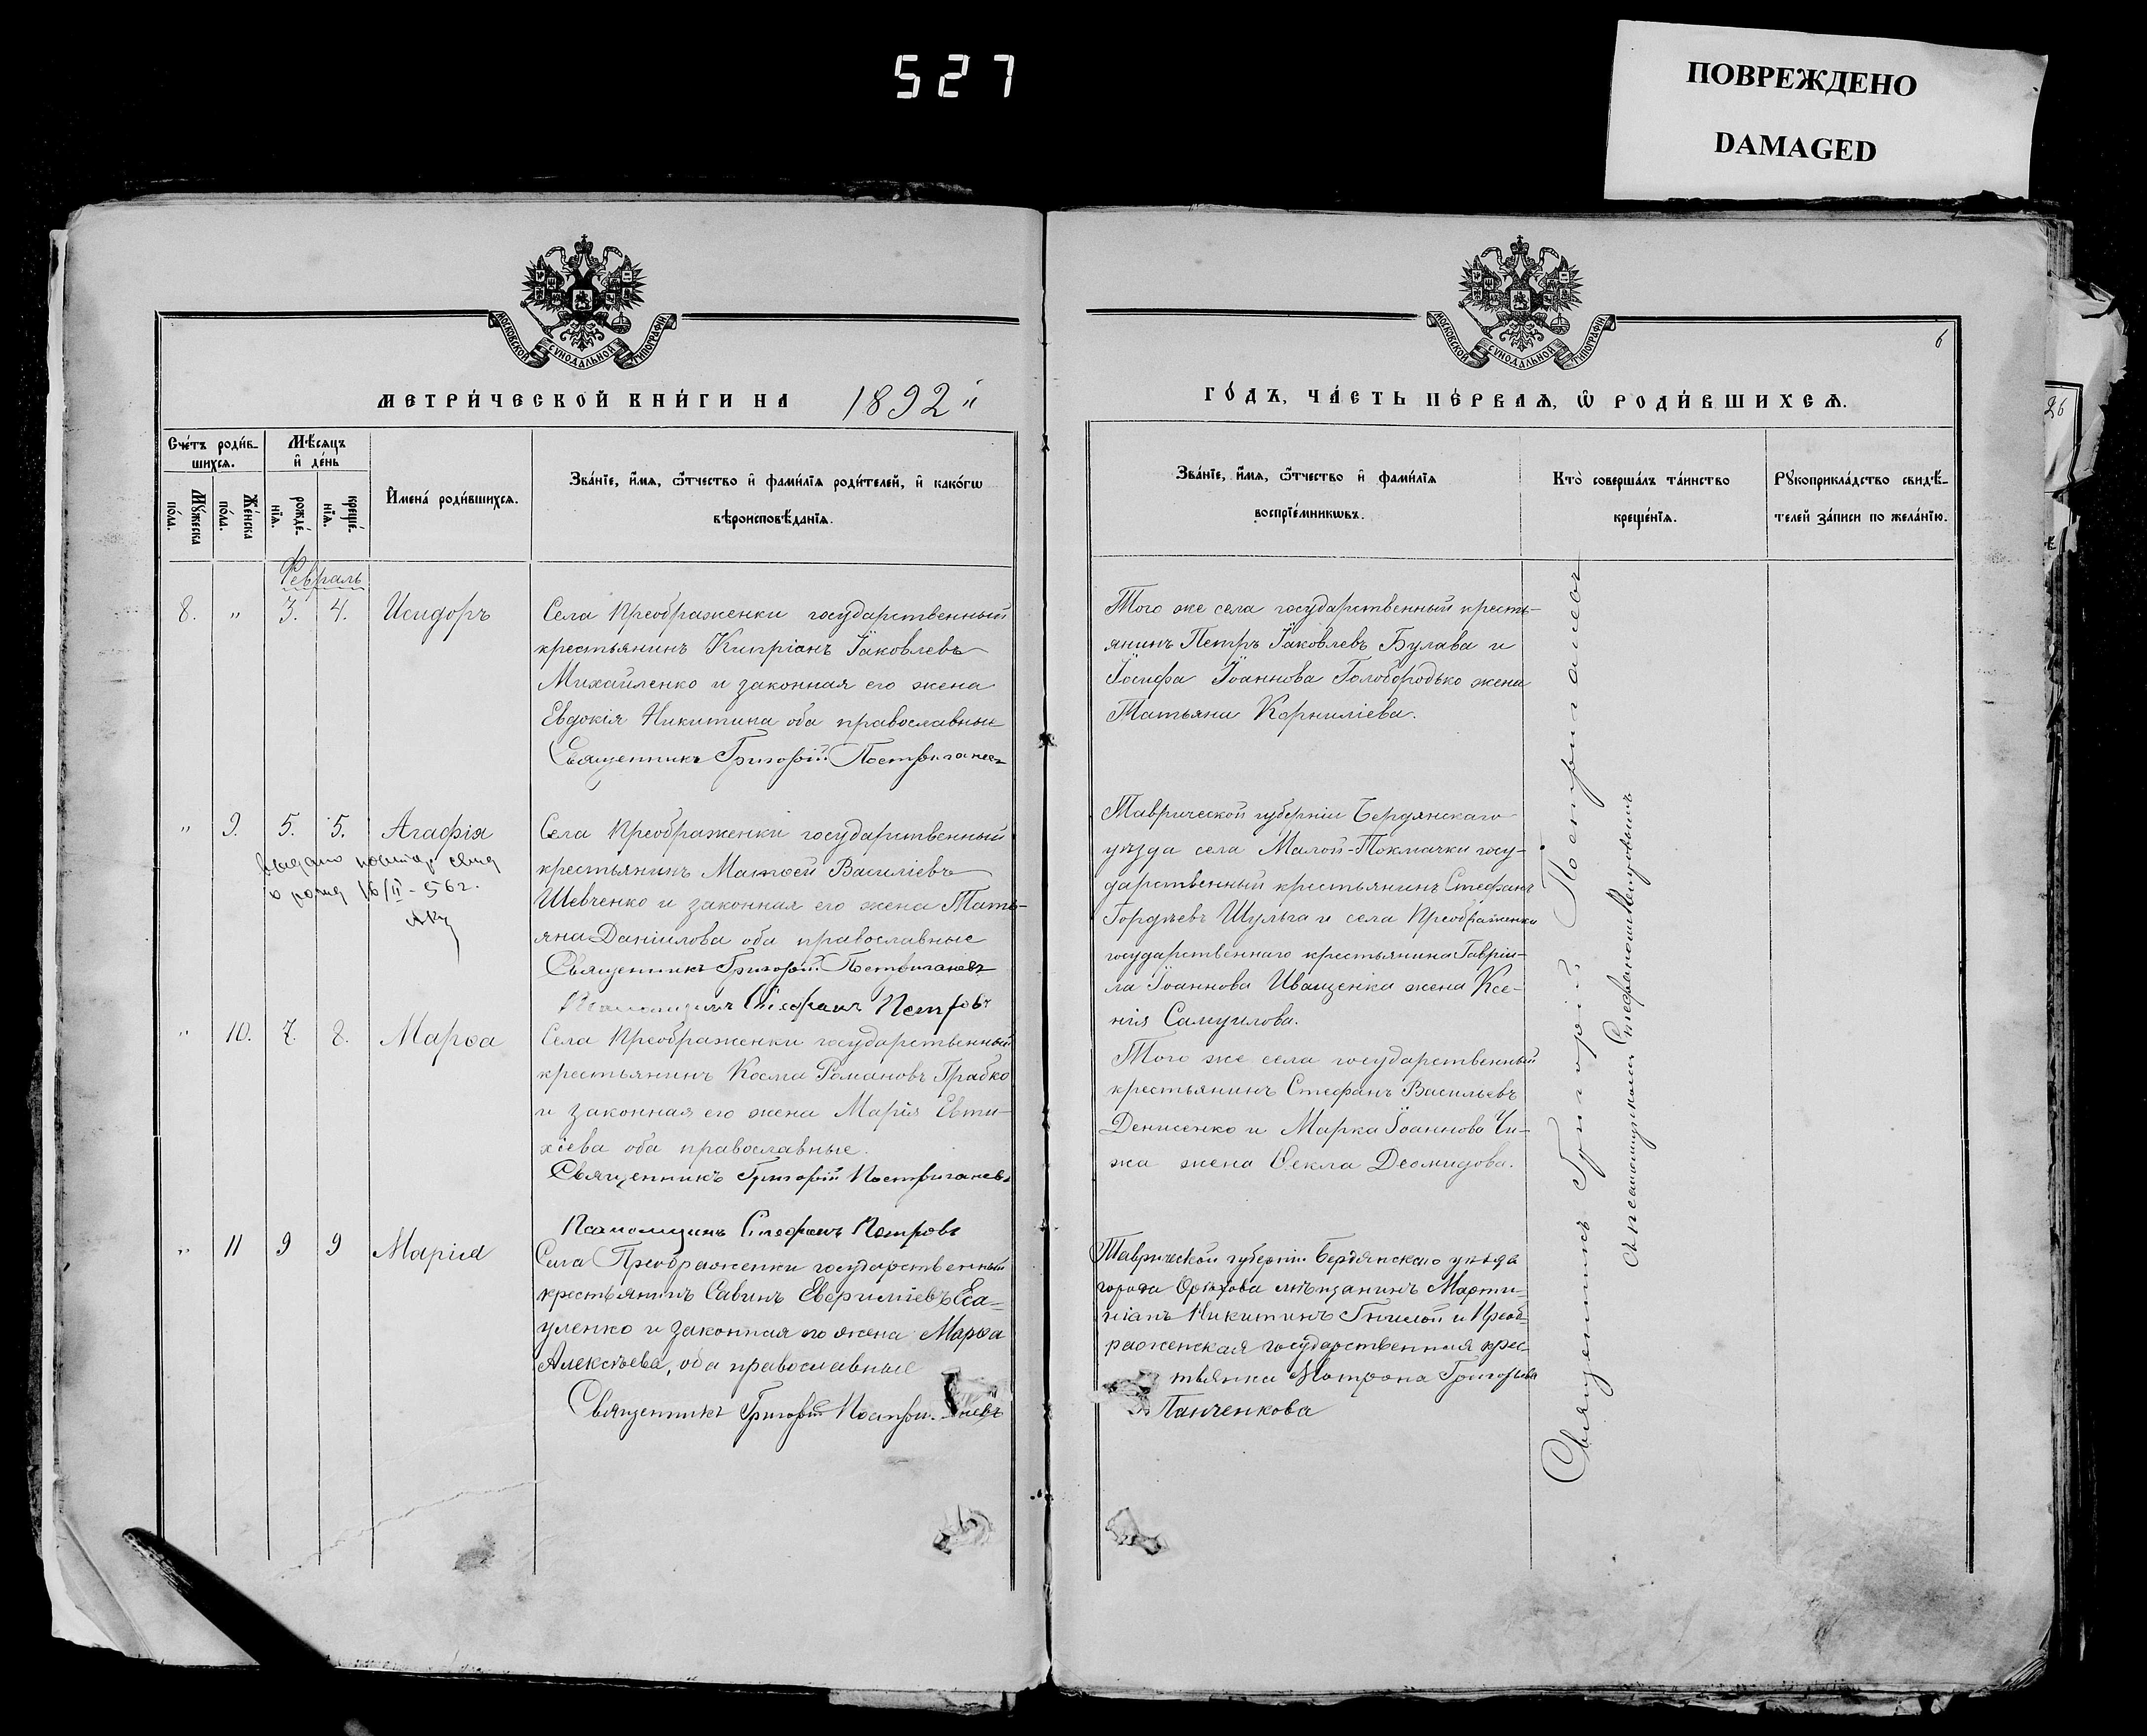 527
ПОВРЕЖДЕНО
DAMAGED
МОСКОВСКОЙ СУНОДАЛЬНОЙ ТИПОГРАФІИ
МЕТРИ́ЧЕСКОЙ КНИ́ГИ НА 1892
Сче́тъ роди́в-
шихсѧ.
Мѣ́сѧцъ
и҆ де́нь
Мꙋ́жеска по́ла.
Же́нска по́ла.
рожде́-
нїѧ.
креще́-
нїѧ.
И҆мена̀ роди́вшихсѧ.
Зва́нїе, и҆́мѧ, ѻ҆́тчество и҆ фами́лїѧ роди́телей, и҆ како́гѡ
вѣроисповѣ́данїѧ.
Февраль
8. " 3. 4. Исидоръ
Села Преображенки государственный
крестьянинъ Кипріанъ Іаковлевъ
Михайленко и законная его жена
Евдокія Никитина оба православные
Священникъ Григорій Постриганевъ
" 9. 5. 5. Агафія
выдано свид
о рожд 16/II-56г.
Села Преображенки государственный
крестьянинъ Матѳей Василіевъ
Шевченко и законная его жена Тать-
яна Даніилова оба православные
Священникъ Григорій Постриганевъ
Псаломщикъ Стефанъ Петровъ
" 10. 7. 8. Марѳа
Села Преображенки государственный
крестьянинъ Косма Романовъ Грабко
и законная его жена Марія Евти-
хіева оба православные.
Священникъ Григорій Постриганевъ
Псаломщикъ Стефанъ Петровъ
" 11 9 9 Марія
Села Преображенки государственный
крестьянинъ Савинъ Евфиміевъ Еса-
уленко и законная его жена Марѳа
Алексѣева, оба православные
Священникъ Григорій
МОСКОВСКОЙ СУНОДАЛЬНОЙ ТИПОГРАФІИ
6
ГО́ДЪ, ЧА́СТЬ ПЕ́РВАѦ, Ѡ҆ РОДИ́ВШИХСѦ.
Зва́нїе, и҆́мѧ, ѻ҆́тчество и҆ фами́лїѧ
воспрїе́мникѡвъ.
Кто̀ соверша́лъ та́инство
креще́нїѧ.
Рꙋкоприкла́дство свидѣ́-
телей за́писи по жела́нїю.
Того же села государственный кресть-
янинъ Петръ Іаковлевъ Булава и
Іосифа Іоаннова Голобородько жена
Татьяна Корниліева.
Таврической губерніи Бердянскаго
уѣзда села Малой-Токмачки госу-
дарственный крестьянинъ Стефанъ
Гордѣевъ Шульга и села Преображенки
государственнаго крестьянина Гаврі-
ла Іоаннова Иващенка жена Ксе-
нія Самуилова.
Того же села государственный
крестьянинъ Стефанъ Васильевъ
Денисенко и Марка Іоаннова Чи-
жа жена Ѳекла Деомидова.
Таврической губерніи Бердянскаго уѣзда
города Орѣхова мѣщанинъ Марти-
ніанъ Никитинъ Гнилой и Преоб-
раженская государственная крес-
тьянка Матрона Григорьева
Панченкова
Священникъ Григорій Постриганевъ
съ псаломщикомъ Стефаномъ Петровымъ
26